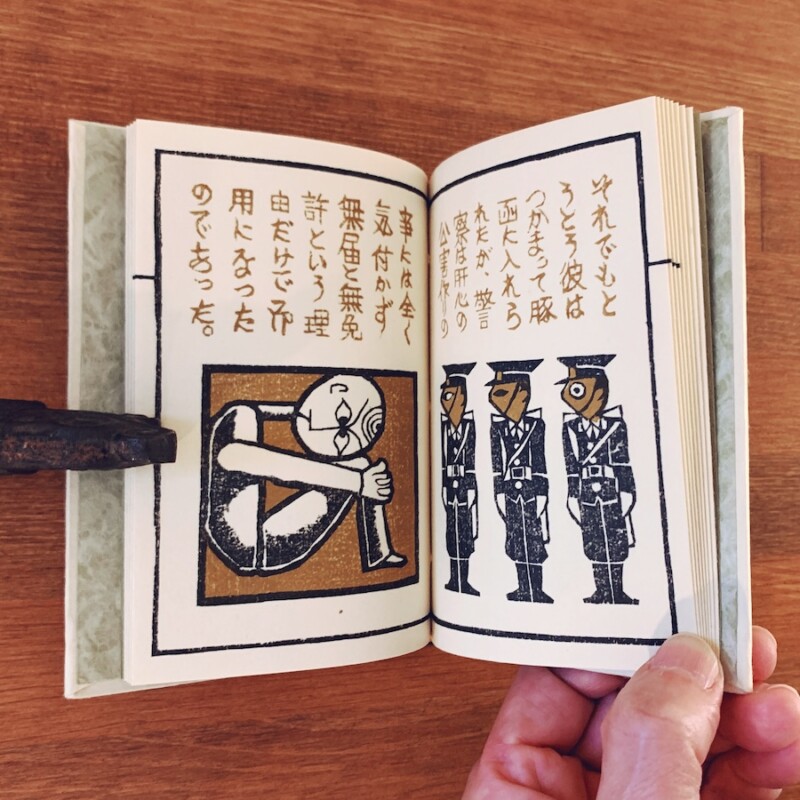 それでもと
うとう彼は
つかまって豚
函に入れら
れたが、警
察は肝心の
公害作りの
事には全く
気付かず
無届と無免
許という理
由だけで御
用になった
のであった。